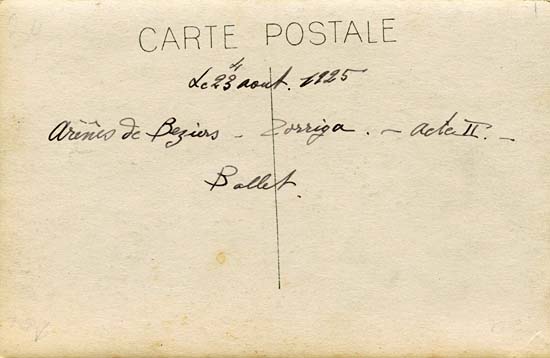 CARTE POSTALE
Le 23 aout. 1925
Arènes de Beziers - Zorriga. - Acte II. -
Ballet.